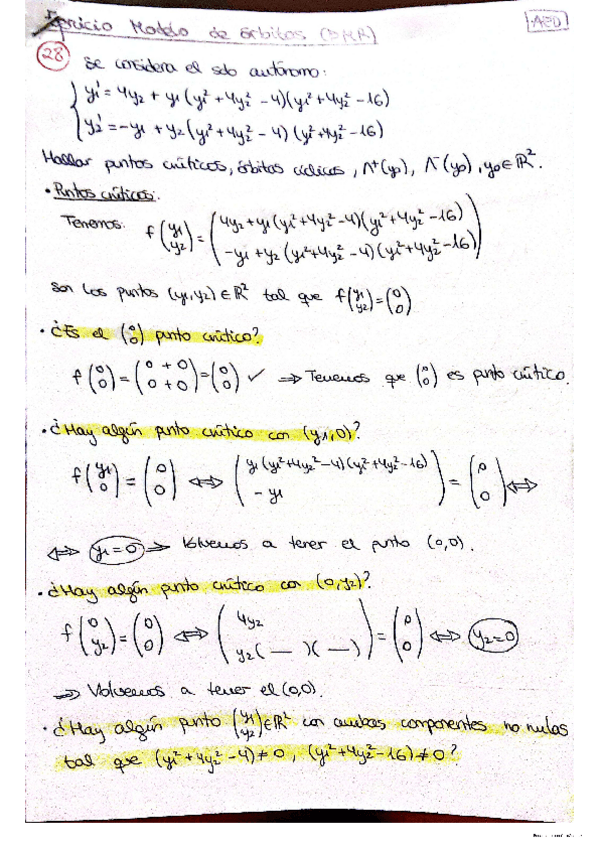 Ejercicio Modelo de órbitas (DMR) AED
28 Se considera el sdo autónomo:
y1' = 4y2 + y1 (y1² + 4y2² - 4)(y1² + 4y2² - 16)
y2' = -y1 + y2 (y1² + 4y2² - 4) (y1² + 4y2² - 16)
Hallar puntos críticos, órbitas cíclicas, Λ⁺(y0), Λ⁻(y0), y0 ∈ ℝ².
• Puntos críticos:
Tenemos: f(y1 y2) = (4y2 + y1 (y1² + 4y2² - 4)(y1² + 4y2² - 16)
-y1 + y2 (y1² + 4y2² - 4)(y1² + 4y2² - 16))
Son los puntos (y1, y2) ∈ ℝ² tal que f(y1 y2) = (0 0)
• ¿Es el (0 0) punto crítico?
f(0 0) = (0 + 0 0 + 0) = (0 0) ✓ ⇒ Tenemos que (0 0) es punto crítico.
• ¿Hay algún punto crítico con (y1, 0)?
f(y1 0) = (0 0) ⇔ (y1 (y1² + 4y2² - 4)(y1² + 4y2² - 16) -y1) = (0 0) ⇔
⇔ y1 = 0 ⇒ Volvemos a tener el punto (0,0).
• ¿Hay algún punto crítico con (0, y2)?
f(0 y2) = (0 0) ⇔ (4y2 y2 ( — )( — )) = (0 0) ⇔ y2 = 0
⇒ Volvemos a tener el (0,0).
• ¿Hay algún punto (y1 y2) ∈ ℝ² con ambas componentes no nulas
tal que (y1² + 4y2² - 4) ≠ 0, (y1² + 4y2² - 16) ≠ 0?